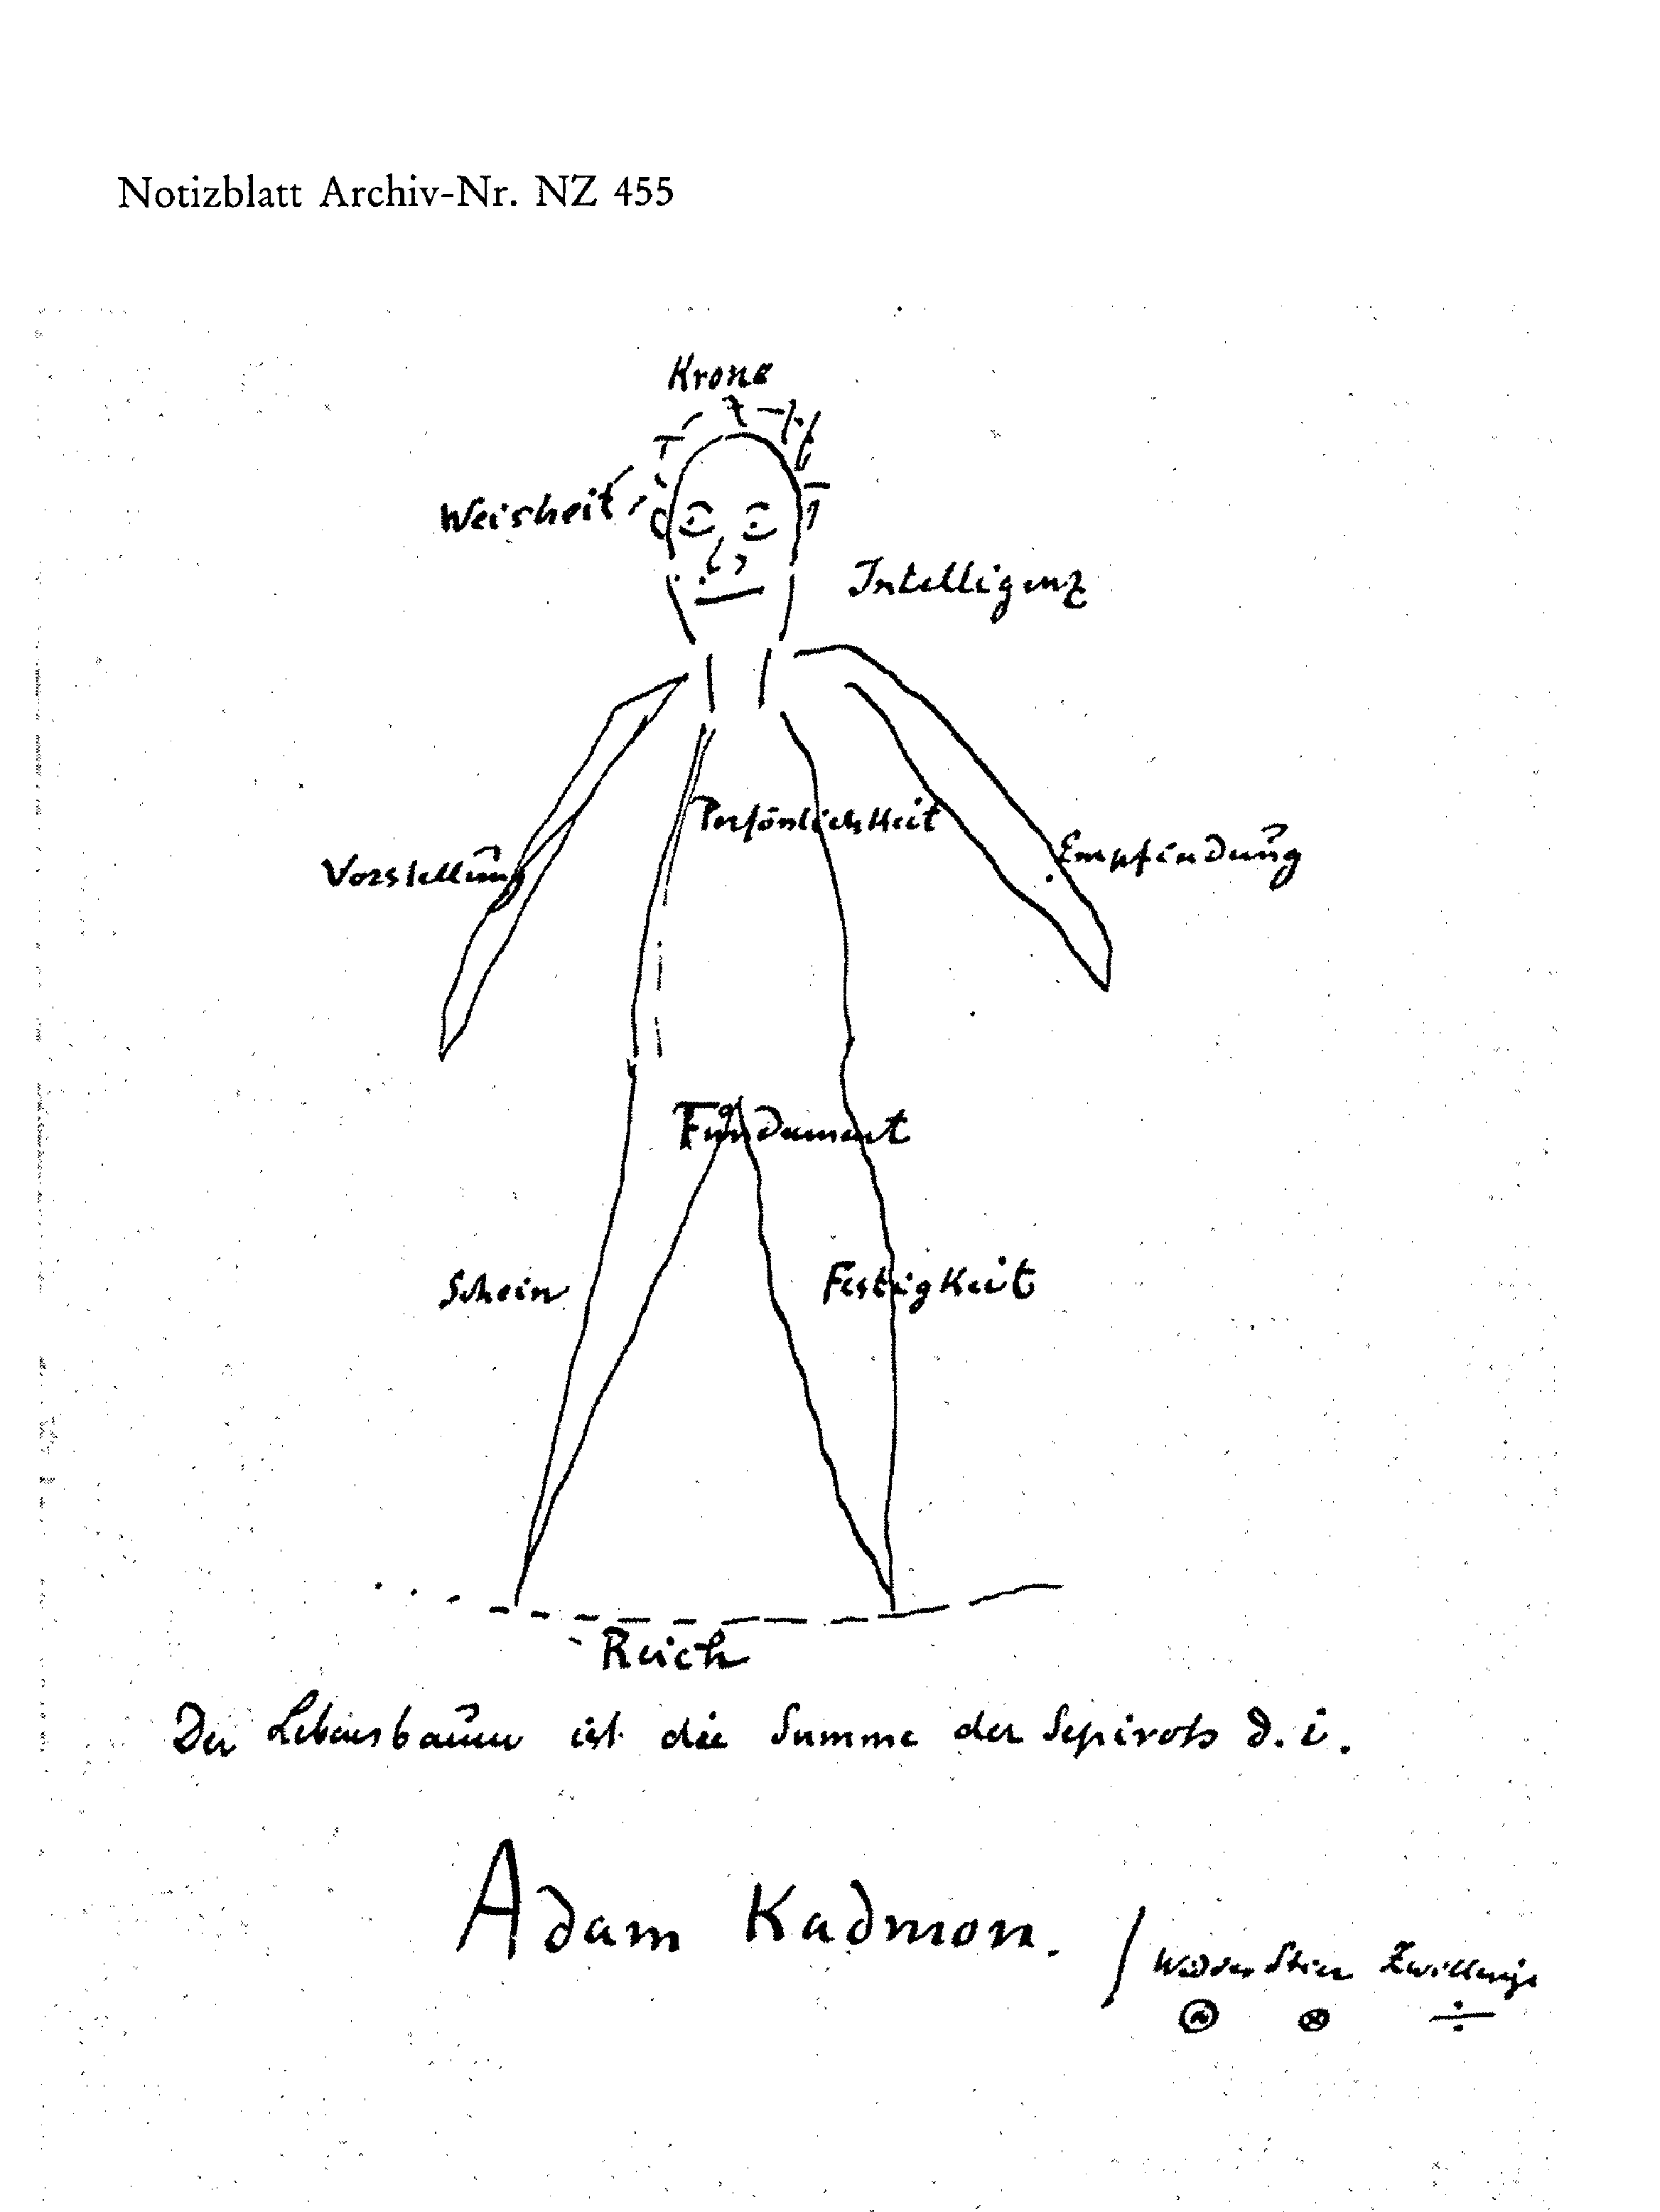 Notizblatt Archiv-Nr. NZ 455
Krone
Weisheit
Intelligenz
Persönlichkeit
Vorstellung
Empfindung
Fundament
Schein
Festigkeit
Reich
Der Lebensbaum ist die Summe der Sepirots d. i.
Adam Kadmon.
/ Widder Stier Zwillinge